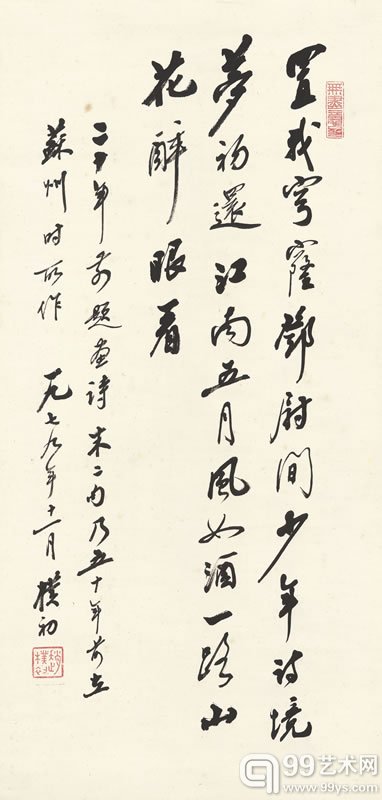 置我穹窿鄧尉間少年詩境
夢初還江南五月風如酒一路山
花醉眼看
二十年前題畫詩末二句乃五十年前在
蘇州時所作 一九七九年十一月 樸初
趙樸初
99艺术网
www.99ys.com